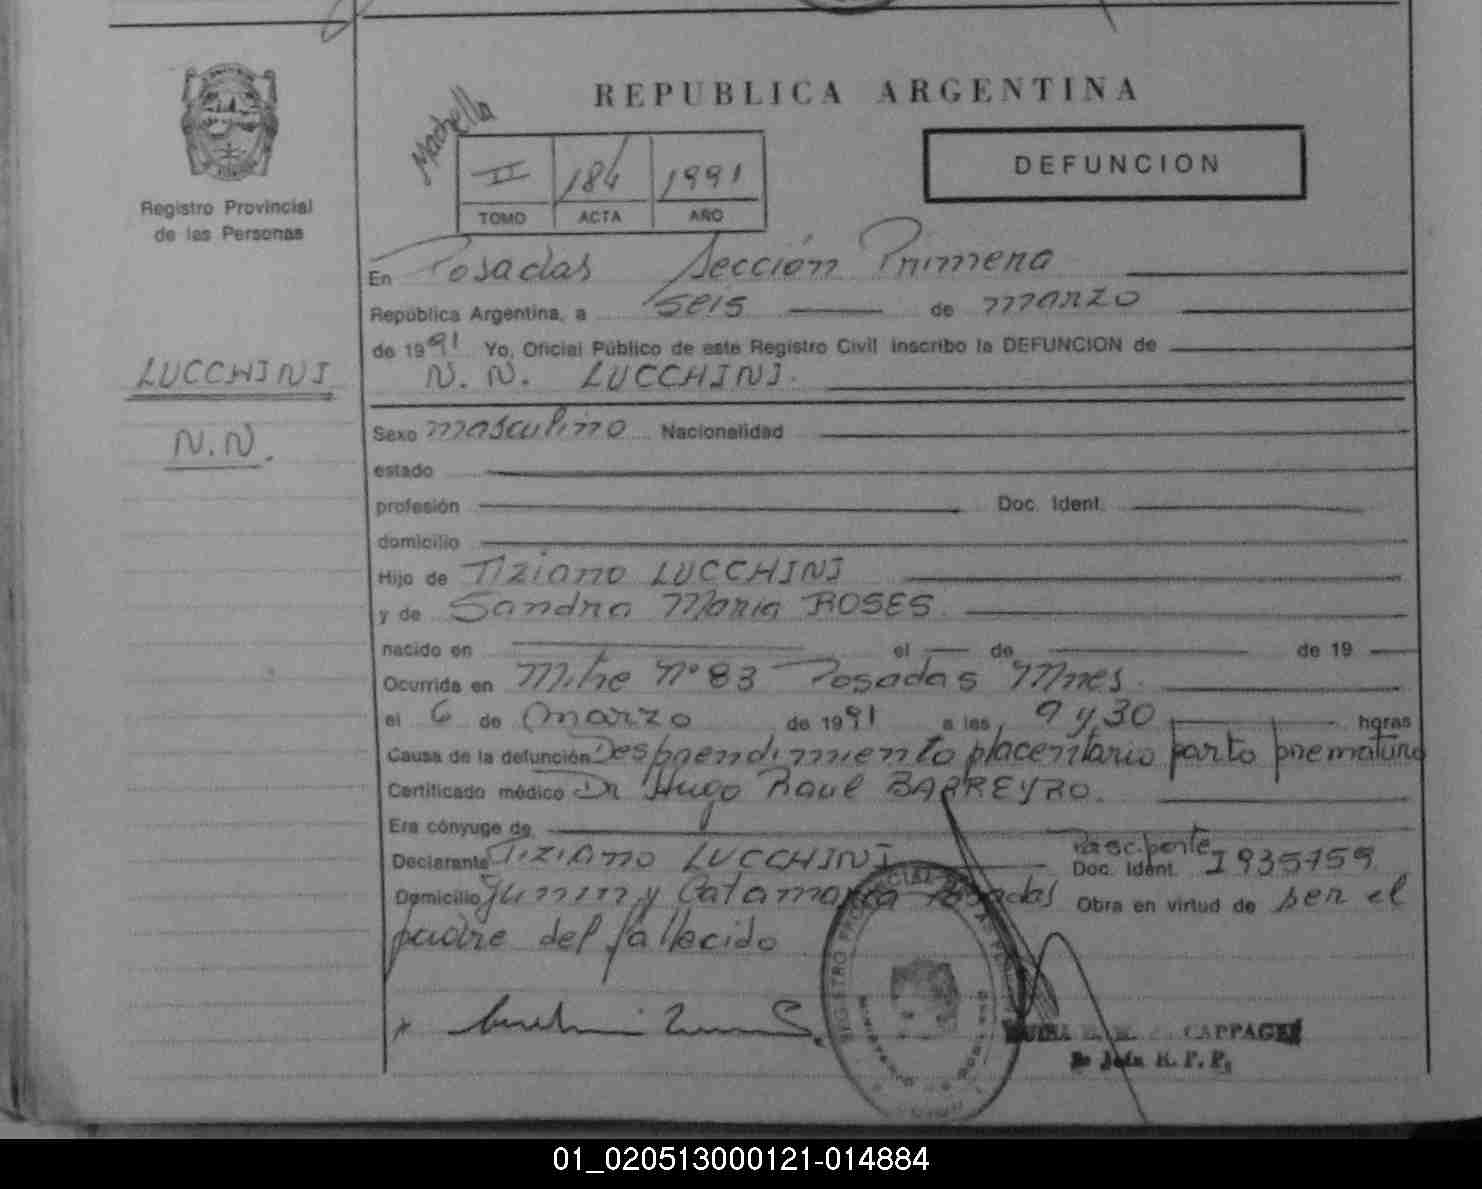 REPUBLICA ARGENTINA
Machella
II 184 1991
TOMO ACTA AÑO
DEFUNCION
Registro Provincial
de las Personas
En Posadas Sección Primera
República Argentina, a seis de marzo
de 1991 Yo, Oficial Público de este Registro Civil inscribo la DEFUNCION de
N. N. LUCCHINI.
LUCCHINI
N.N.
Sexo masculino Nacionalidad
estado
profesión Doc. Ident.
domicilio
Hijo de Tiziano LUCCHINI
y de Sandra Maria ROSES.
nacido en el de de 19
Ocurrida en Mitre Nº 83 Posadas Mnes.
el 6 de marzo de 1991 a las 9 y 30 horas
Causa de la defunción Desprendimiento placentario parto prematuro
Certificado médico Dr Hugo Raul BARREYRO.
Era cónyuge de
Declarante Tiziano LUCCHINI Doc. Ident. I935759
Domicilio Junin y Catamarca Posadas Obra en virtud de ser el
padre del fallecido
CAPPAGE
R. P. P.
01_020513000121-014884